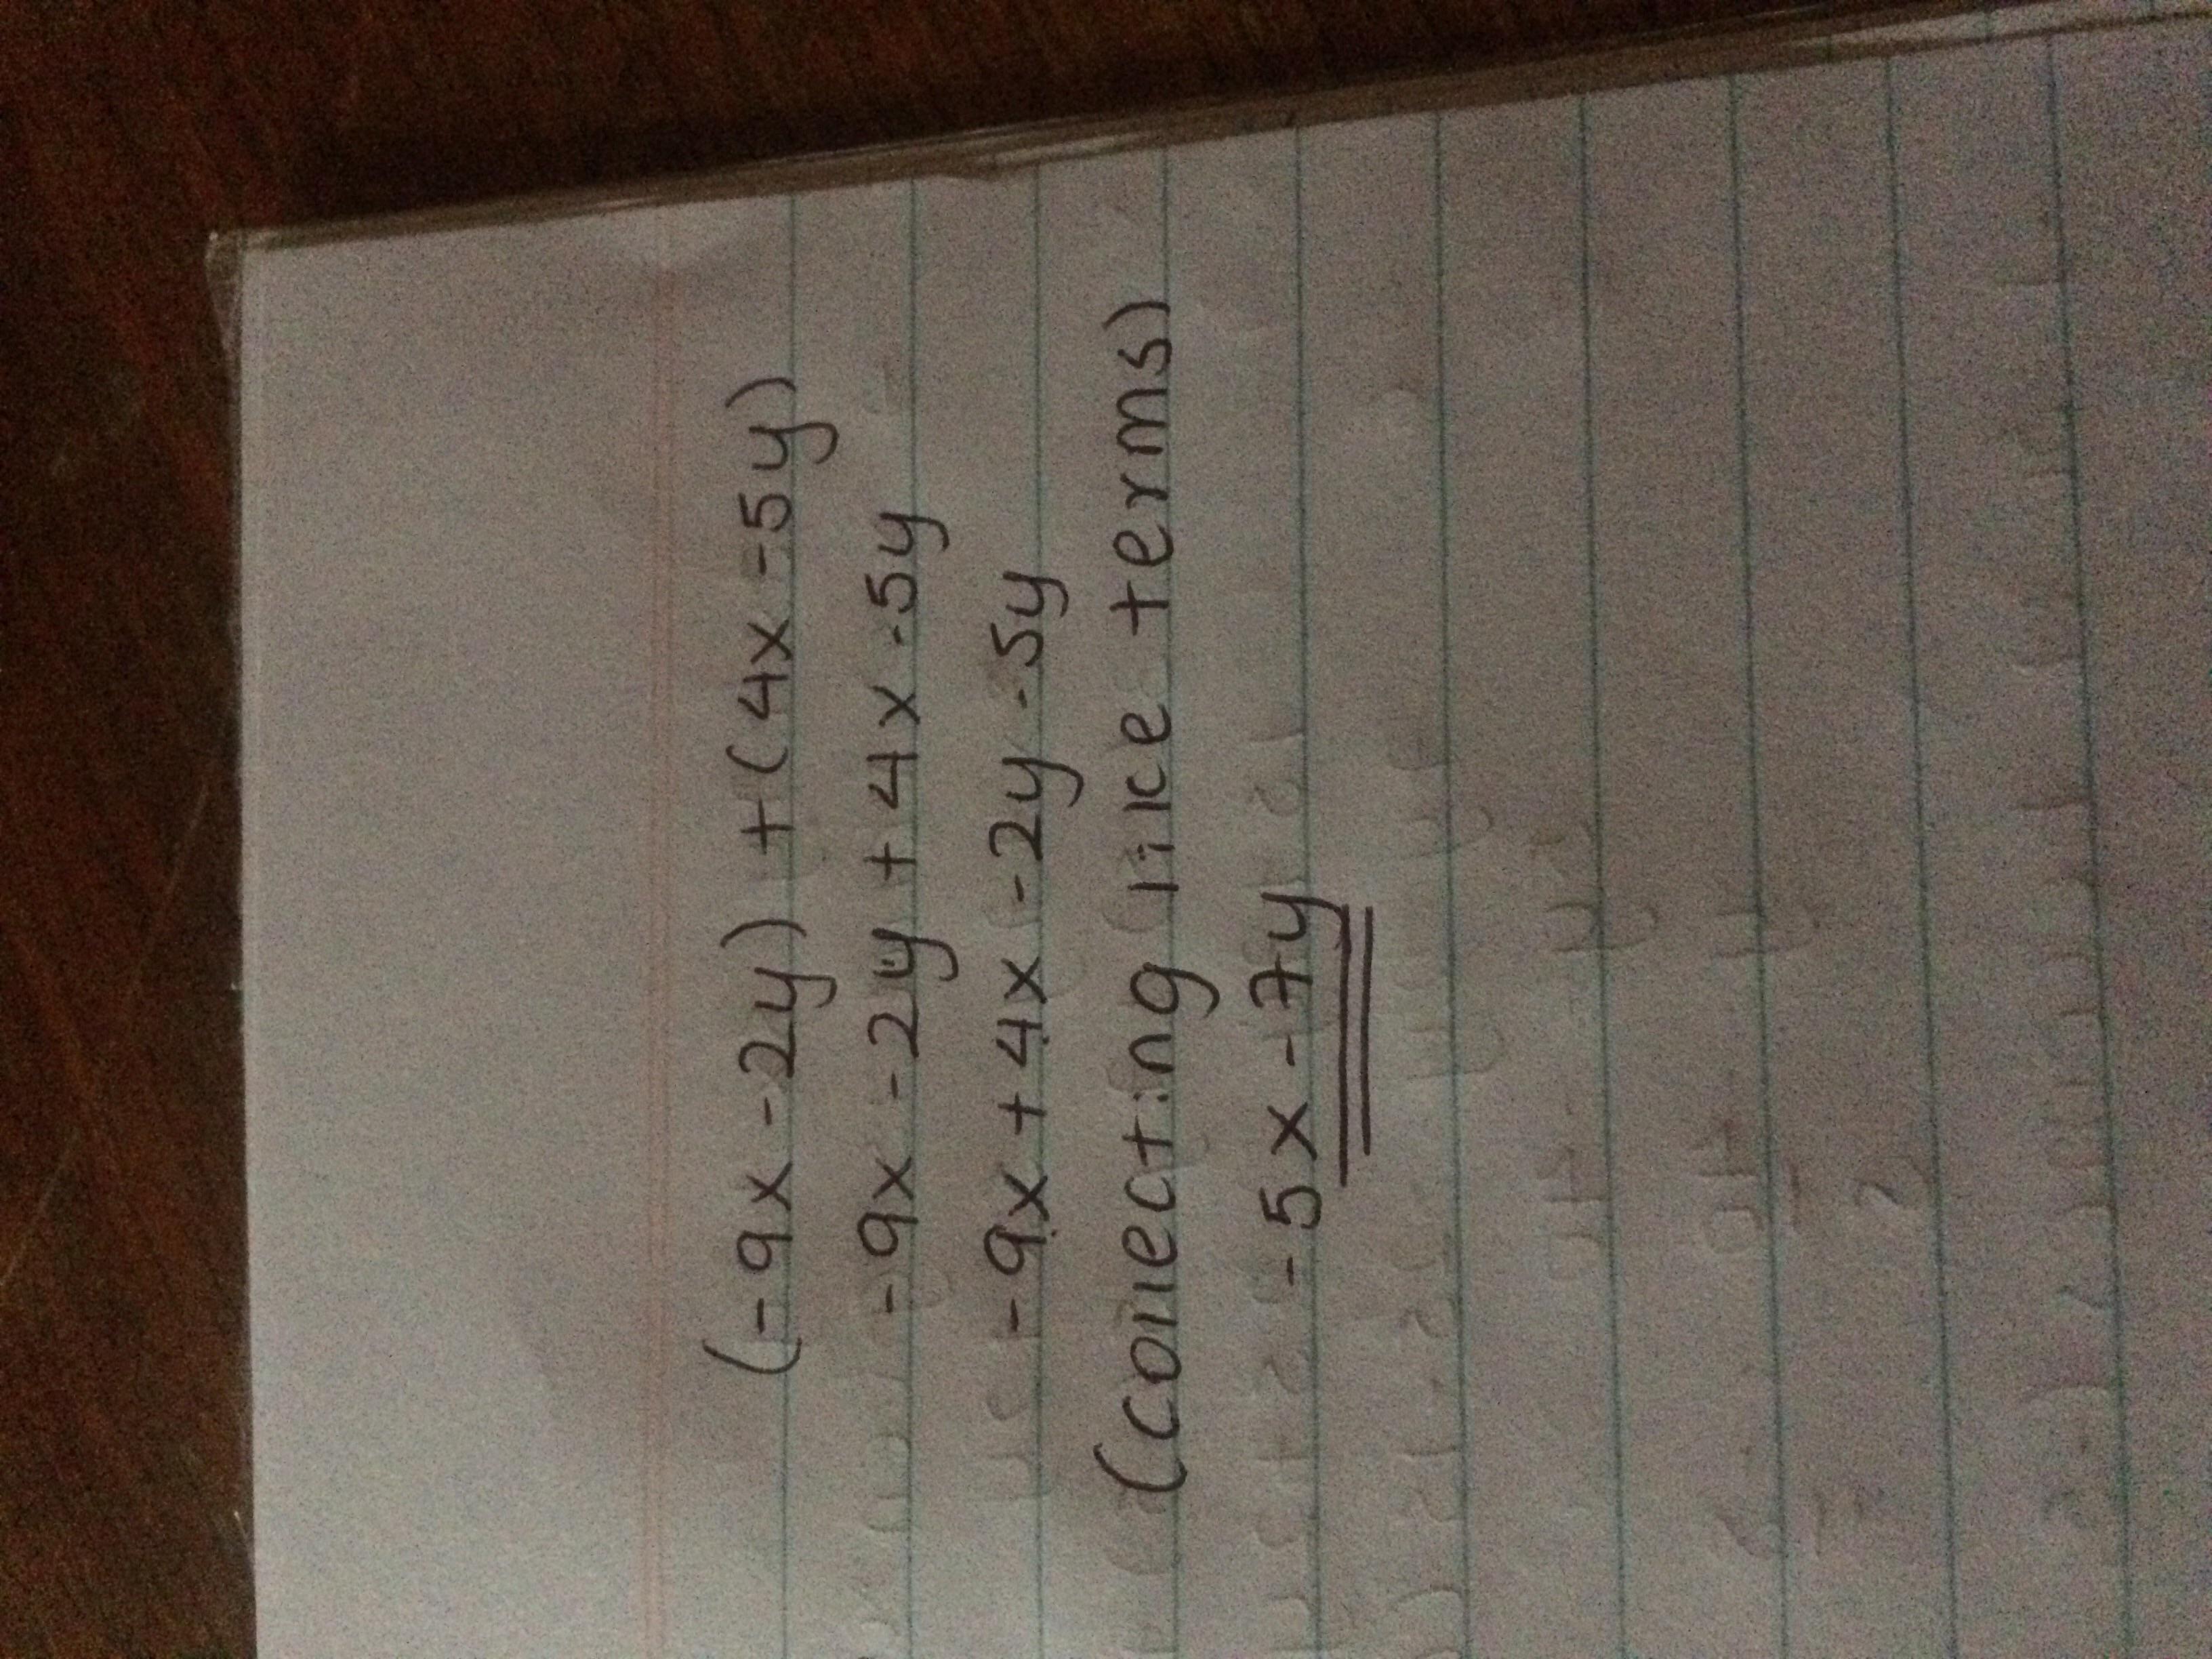 (-9x-2y) +(4x-5y)
-9x-2y+4x-5y
-9x+4x-2y-5y
(collecting like terms)
-5x-7y